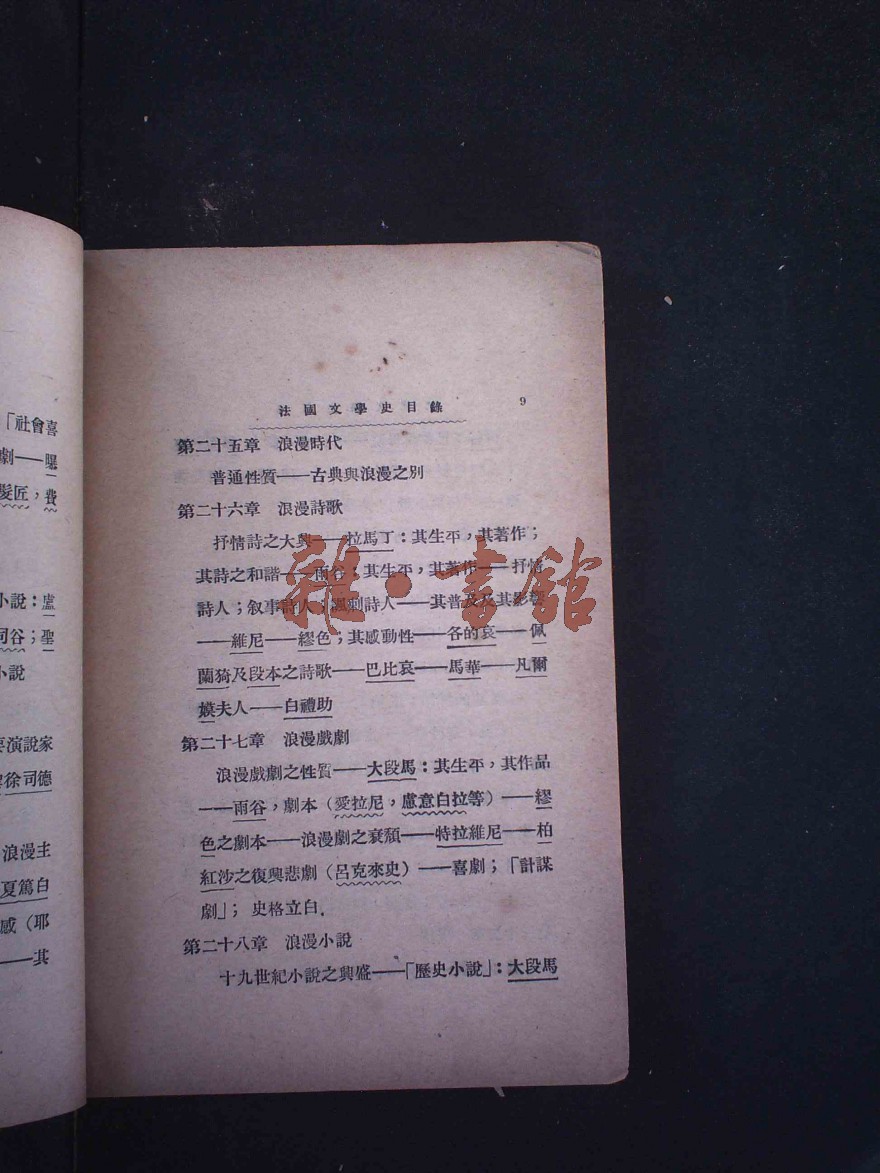 「社會喜
劇——曝
髮匠，費
小說：盧
司谷；聖
小說
演說家
徐司德
浪漫主
夏篤白
感（耶
——其
法國文學史目錄 9
第二十五章 浪漫時代
普通性質——古典與浪漫之別
第二十六章 浪漫詩歌
抒情詩之大興——拉馬丁：其生平，其著作；
其詩之和諧——雨谷：其生平，其著作——抒情
詩人；叙事詩人；諷刺詩人——其普及及其影響
——維尼——繆色；其感動性——各的哀——佩
蘭猗及段本之詩歌——巴比哀——馬華——凡爾
嫫夫人——白禮助
第二十七章 浪漫戲劇
浪漫戲劇之性質——大段馬：其生平，其作品
——雨谷，劇本（愛拉尼，慮意白拉等）——繆
色之劇本——浪漫劇之衰頹——特拉維尼——柏
紅沙之復興悲劇（呂克來史）——喜劇；「計謀
劇」；史格立白．
第二十八章 浪漫小說
十九世紀小說之興盛——「歷史小說」：大段馬
雜·書館